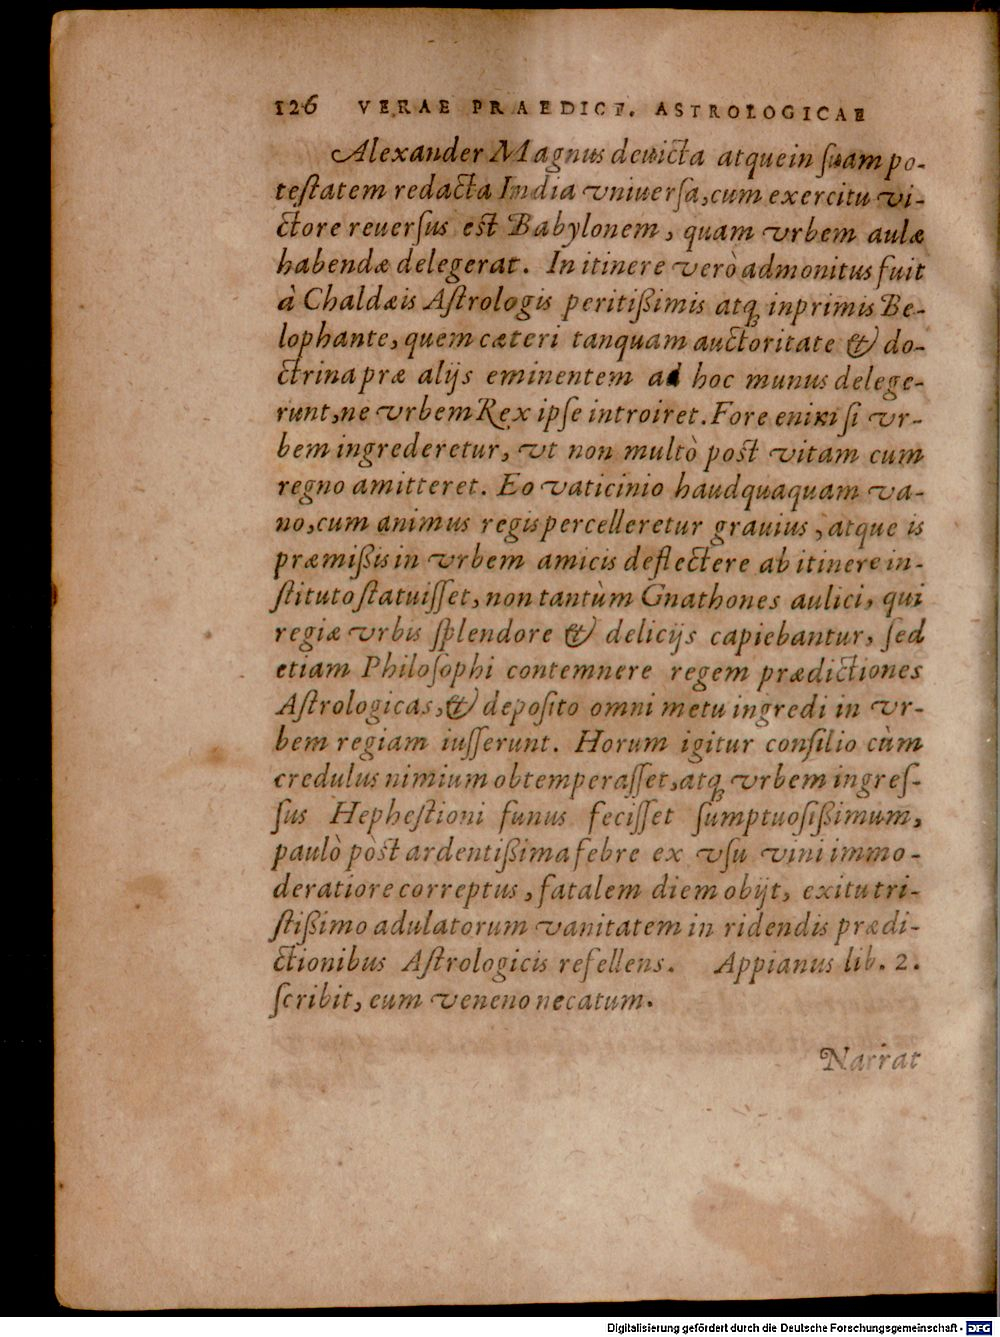 126 VERAE PRAEDICT. ASTROLOGICAE
Alexander Magnus deuicta atque in suam po-
testatem redacta India vniuersa, cum exercitu vi-
ctore reuersus est Babylonem, quam vrbem aulæ
habendæ delegerat. In itinere verò admonitus fuit
à Chaldæis Astrologis peritißimis atq; inprimis Be-
lophante, quem cæteri tanquam auctoritate & do-
ctrina præ alijs eminentem ad hoc munus delege-
runt, ne vrbem Rex ipse introiret. Fore enim si vr-
bem ingrederetur, vt non multò post vitam cum
regno amitteret. Eo vaticinio haudquaquam va-
no, cum animus regis percelleretur grauius, atque is
præmißis in vrbem amicis deflectere ab itinere in-
stituto statuisset, non tantùm Gnathones aulici, qui
regiæ vrbis splendore & delicijs capiebantur, sed
etiam Philosophi contemnere regem prædictiones
Astrologicas, & deposito omni metu ingredi in vr-
bem regiam iusserunt. Horum igitur consilio cùm
credulus nimium obtemperasset, atq; vrbem ingres-
sus Hephestioni funus fecisset sumptuosißimum,
paulò pòst ardentißima febre ex vsu vini immo-
deratiore correptus, fatalem diem obijt, exitu tri-
stißimo adulatorum vanitatem in ridendis prædi-
ctionibus Astrologicis refellens. Appianus lib. 2.
scribit, eum veneno necatum.
Narrat
Digitalisierung gefördert durch die Deutsche Forschungsgemeinschaft - DFG